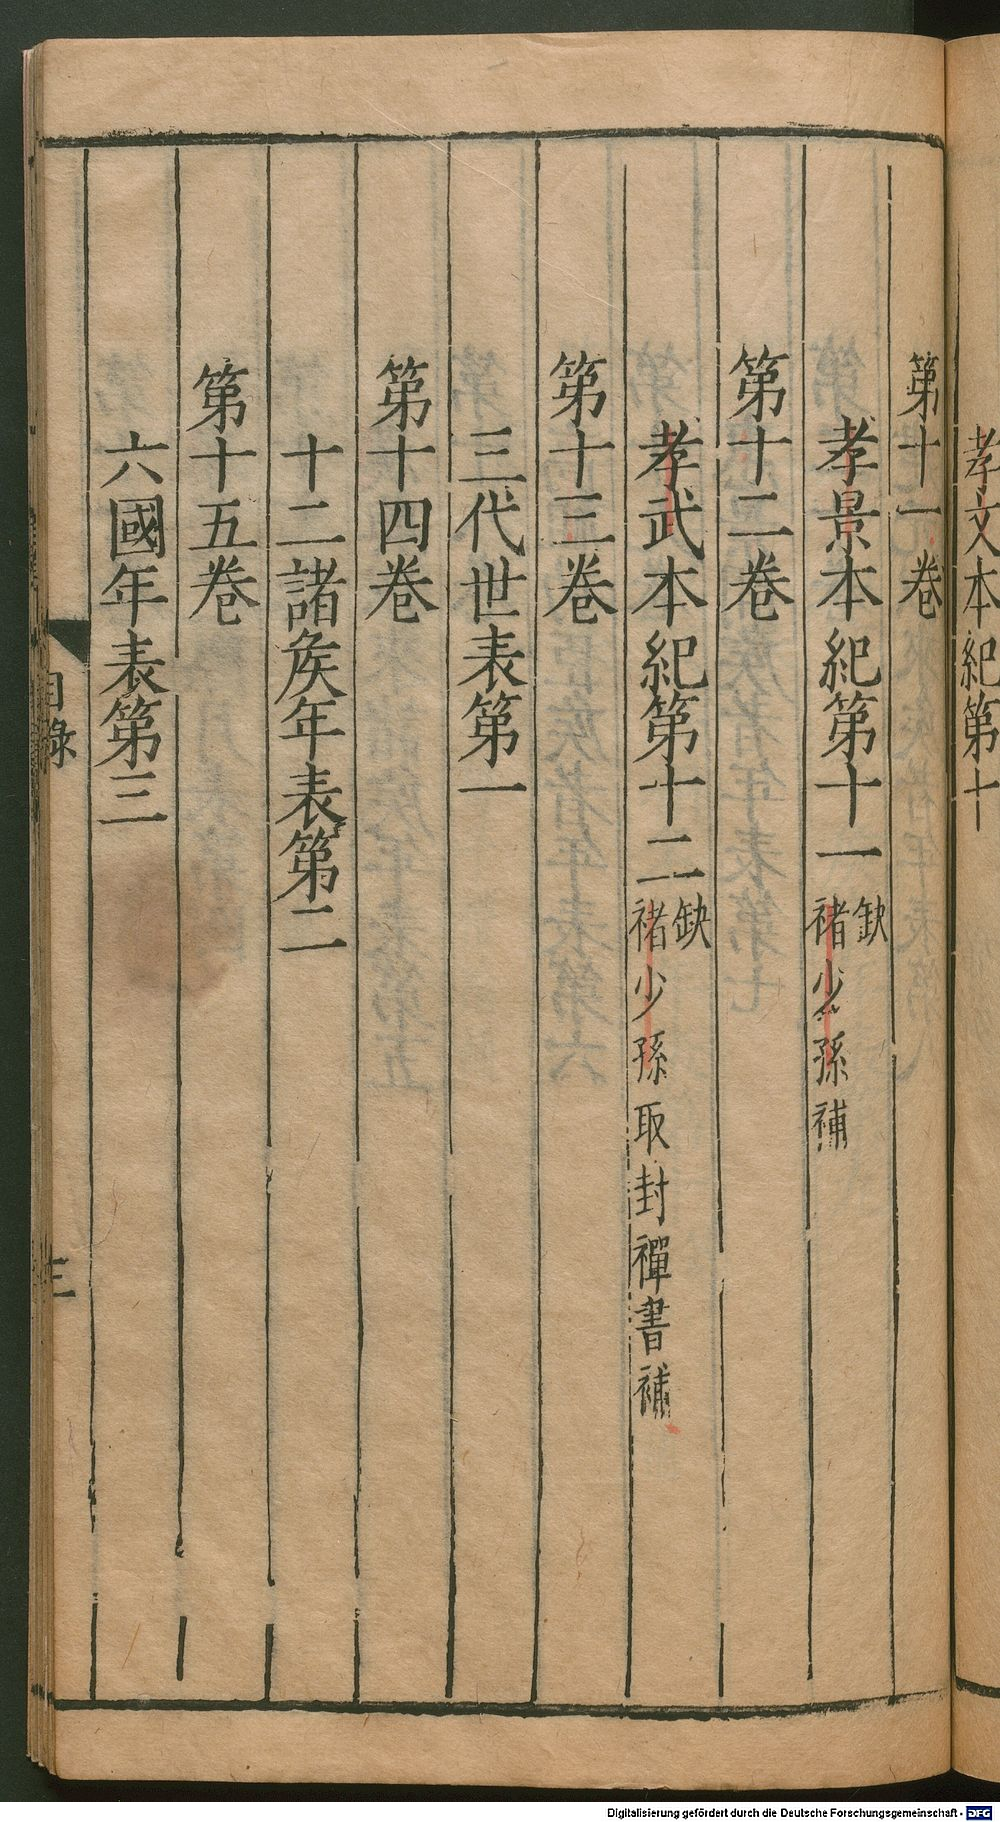 孝文本紀第十
第十一卷
孝景本紀第十一 缺 褚少孫補
第十二卷
孝武本紀第十二 缺 褚少孫取封禪書補
第十三卷
三代世表第一
第十四卷
十二諸矦年表第二
第十五卷
六國年表第三
目錄
三
Digitalisierung gefördert durch die Deutsche Forschungsgemeinschaft - DFG